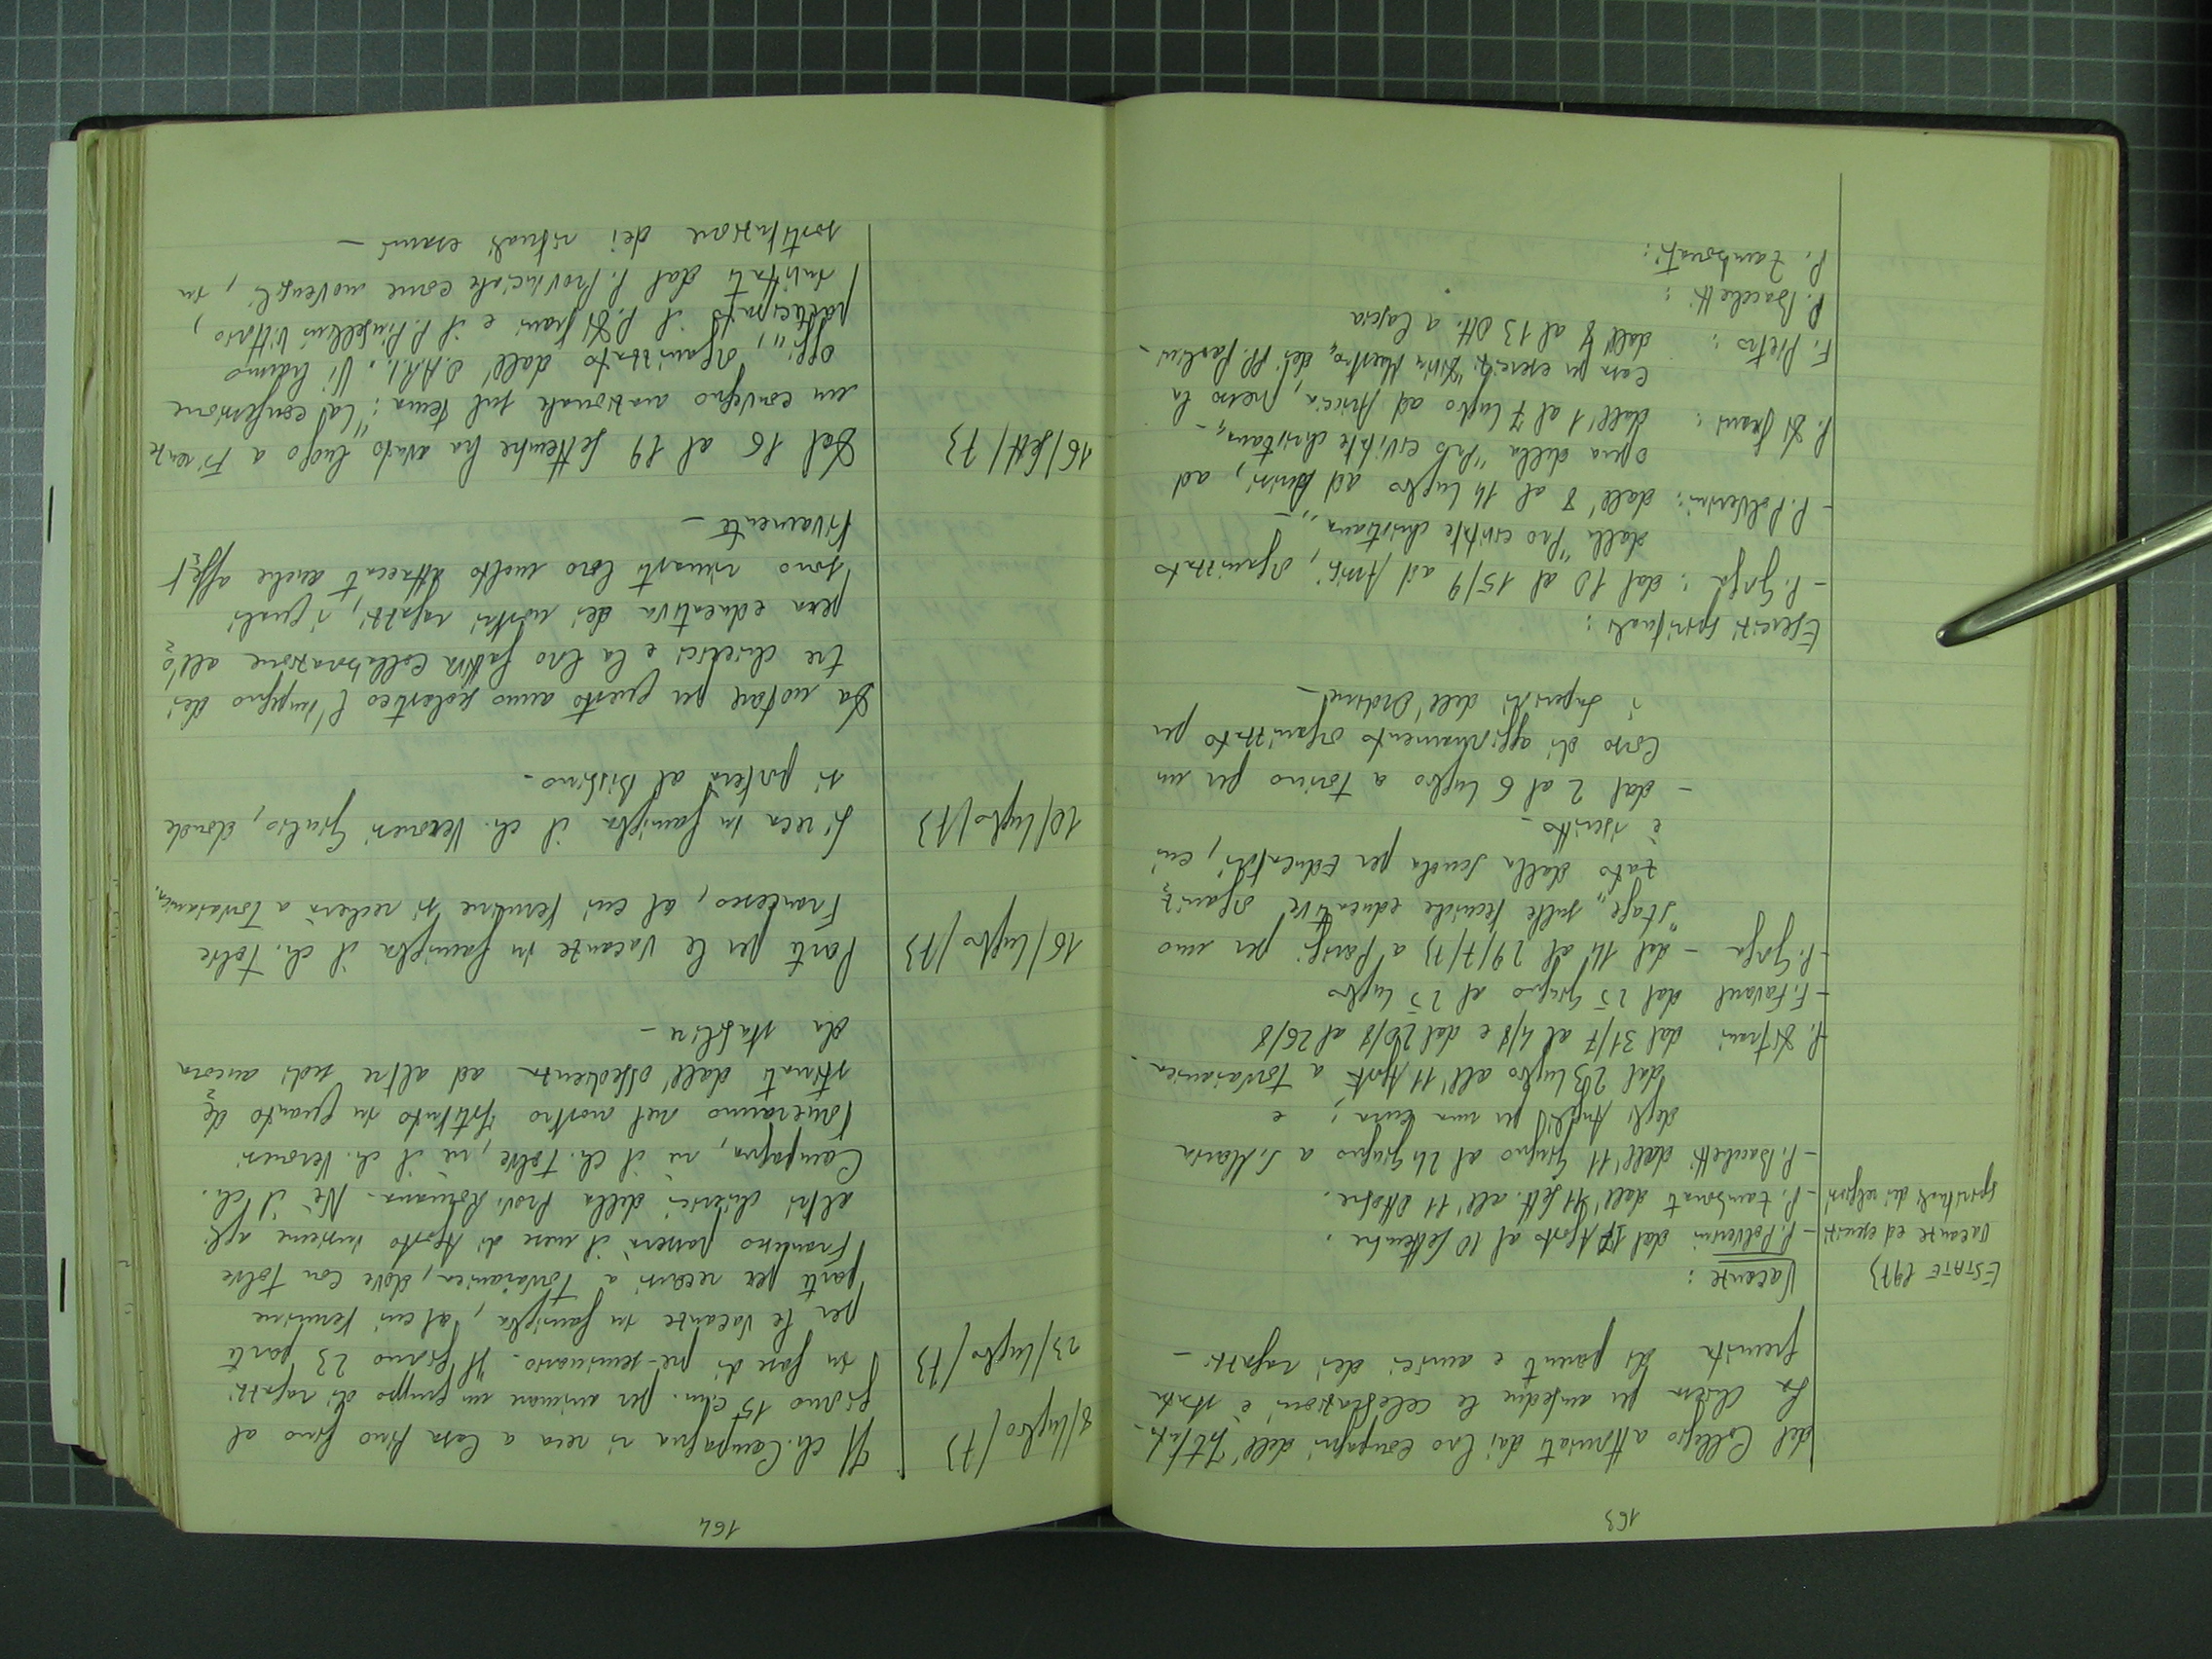 163
del Collegio attorniati dai loro compagni dell'Istitut-
La chiesa per ambedue le celebrazioni è stata
gremita di parenti e amici dei ragazzi -
ESTATE 1973
vacanze ed esercizi
spirituali dei religiosi
Vacanze:
- P. Polverini dal 17 Agosto al 10 Settembre.
- P. Zambonati dall'11 Sett. all'11 Ottobre.
- P. Bacchetti dall'11 Giugno al 24 Giugno a S. Maria
degli Angeli per una cura; e
dal 23 Luglio all'11 Agosto a Torvaianica.
P. Di Frani dal 31/7 al 4/8 e dal 20/8 al 26/8
- F. dal 25 Giugno al 25 Luglio
- P. Gorga - dal 14 al 29/7/73 a Parigi per uno
"stage" sulle tecniche educative organiz=
zato dalla Scuola per Educatori, cui
è iscritto -
- dal 2 al 6 Luglio a Torino per un
Corso di aggiornamento organizzato per
i Superiori dell'Ordine -
Esercizi spirituali:
- P. Gorga: dal 10 al 15/9 ad Assisi, organizzato
dalla "Pro civitate christiana" -
- P. Polverini: dall'8 al 14 Luglio ad Assisi, ad
opera della "Pro civitate christiana" -
P. Di Frani: dall'1 al 7 Luglio ad Ariccia, presso la
Casa per esercizi "Divin Maestro" dei PP. Paolini -
F. Pietro: dall'8 al 13 Ott. a Cascia
P. Bacchetti:
P. Zambonati:
164
8/luglio/73
Il ch. Campagna si reca a Casa Pino fino al
giorno 15 c.m. per animare un gruppo di ragazzi
in fase di pre-seminario. Il giorno 23 parte
23/luglio/73
per le vacanze in famiglia, al cui termine
parte per recarsi a Torvaianica, dove con Tolve
Francesco passerà il mese di Agosto insieme agli
altri chierici della Prov. Romana - Né il ch.
Campagna, né il ch. Tolve, né il ch. Veronesi
torneranno nel nostro Istituto in quanto de=
stinati dall'obbedienza ad altre sedi ancora
da stabilire -
16/luglio/73
Parte per le vacanze in famiglia il ch. Tolve
Francesco, al cui termine si recherà a Torvaianica.
10/luglio/73
Si reca in famiglia il ch. Veronesi Giulio, donde
si porterà al Bisbino -
Da notare per questo anno scolastico l'impegno dei
tre chierici e la loro fattiva collaborazione all'o=
pera educativa dei nostri ragazzi, i quali
sono rimasti loro molto attaccati anche affet=
tivamente -
16/Sett/73
Dal 16 al 19 Settembre ha avuto luogo a Firenze
un convegno nazionale sul tema: "La confessione
oggi", organizzato dall'O.A.R.I. Vi hanno
partecipato il P. Di Frani e il P. Vittorio,
invitati dal P. Provinciale come novensili, in
sostituzione dei rituali esami -